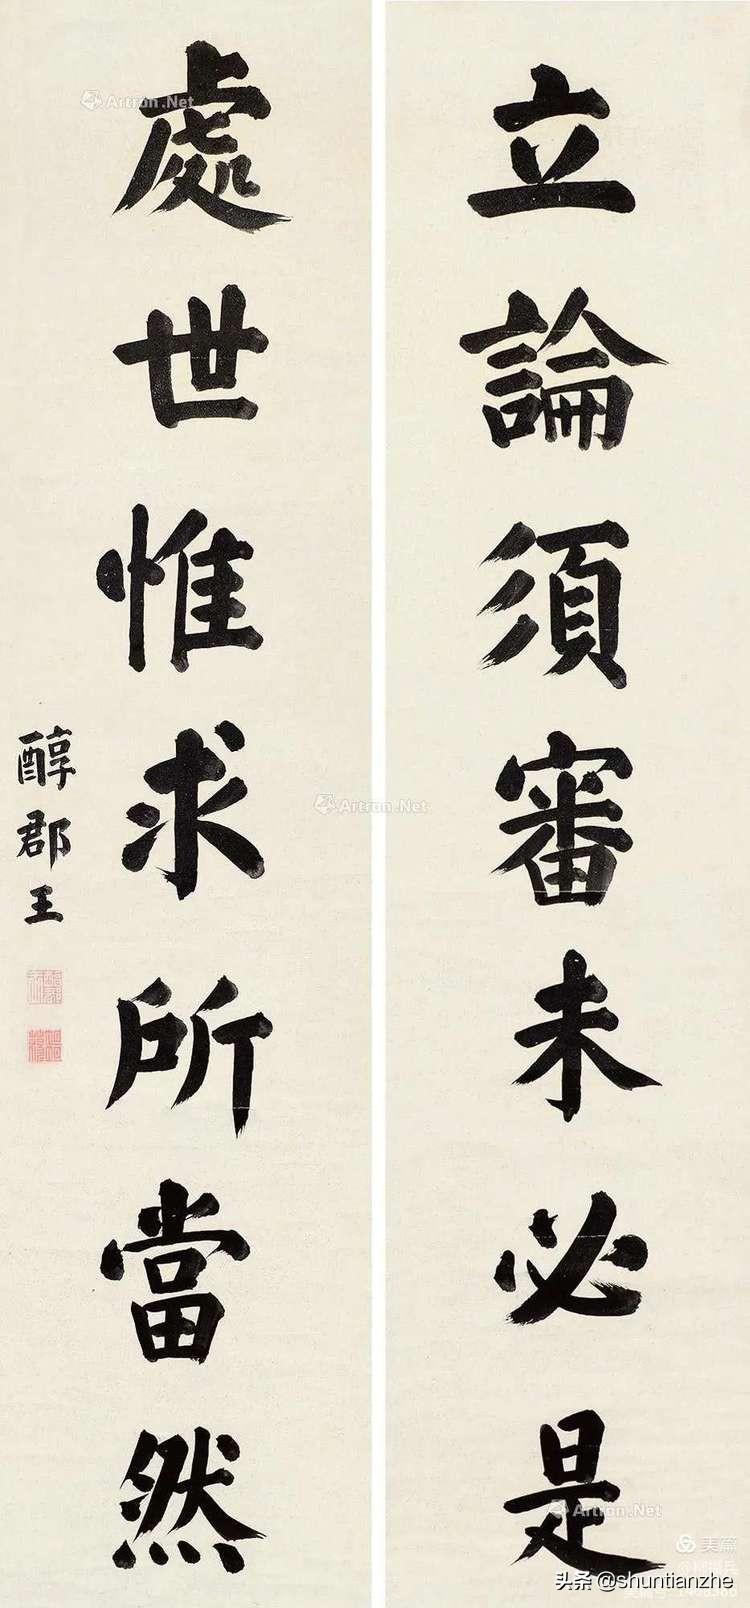 立論須審未必是
處世惟求所當然
醇郡王
Artron.Net
Artron.Net
Artron.Net
美篇
头条 @shuntianzhe